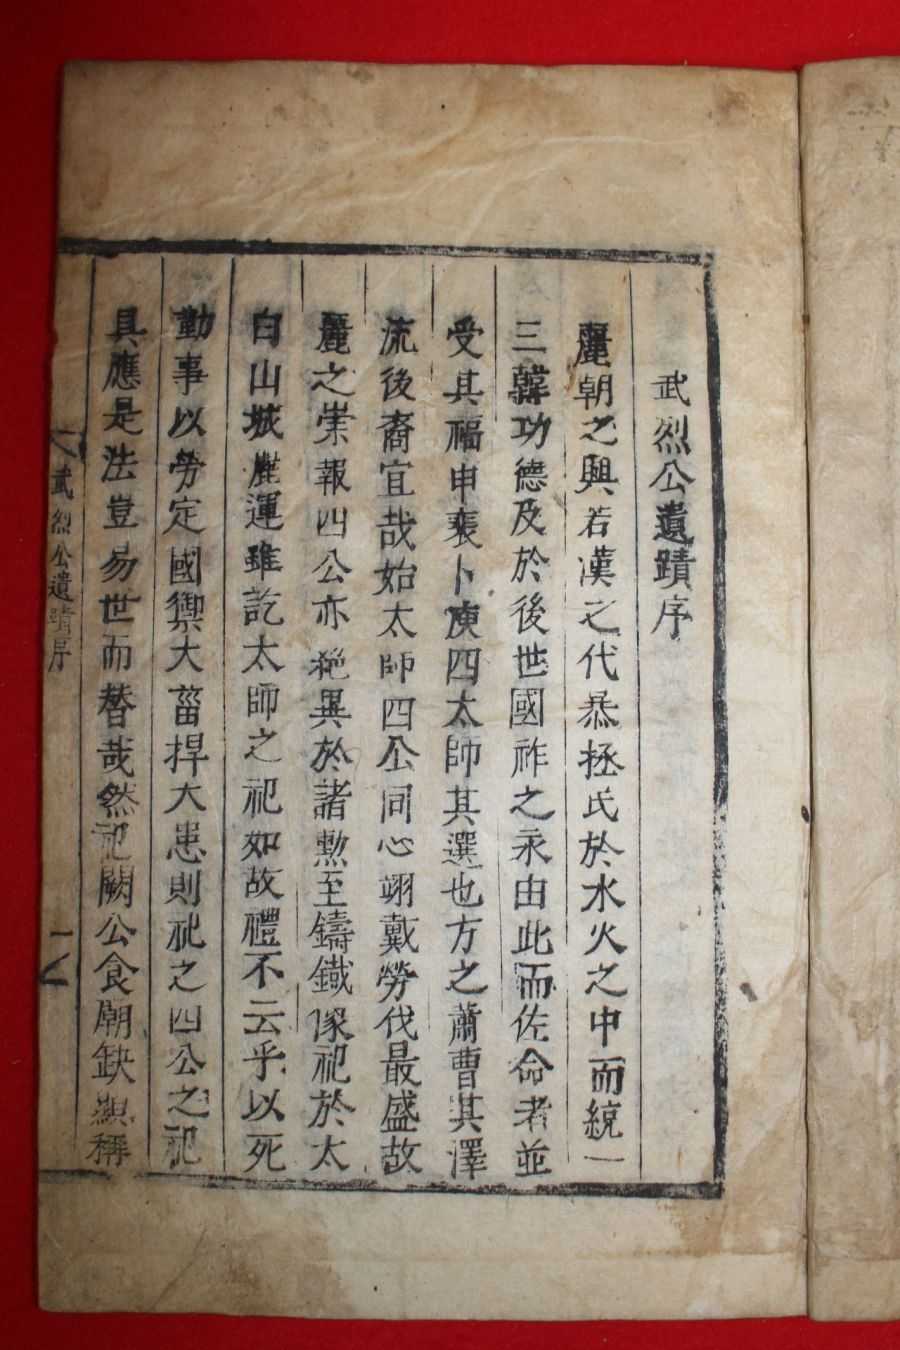 武烈公遺蹟序
麗朝之興若漢之代恭拯氏於水火之中而統一
三韓功德及於後世國祚之永由此而佐命者並
受其福申裵卜庾四太師其選也方之蕭曹其澤
流後裔宜哉始太師四公同心翊戴勞伐最盛故
麗之崇報四公亦絶異於諸勲至鑄鐵像祀於太
白山城麗運雖訖太師之祀如故禮不云乎以死
勤事以勞定國禦大菑捍大患則祀之四公之祀
具應是法豈易世而替哉然祀闕公食廟缺觀稱
武烈公遺蹟序
一